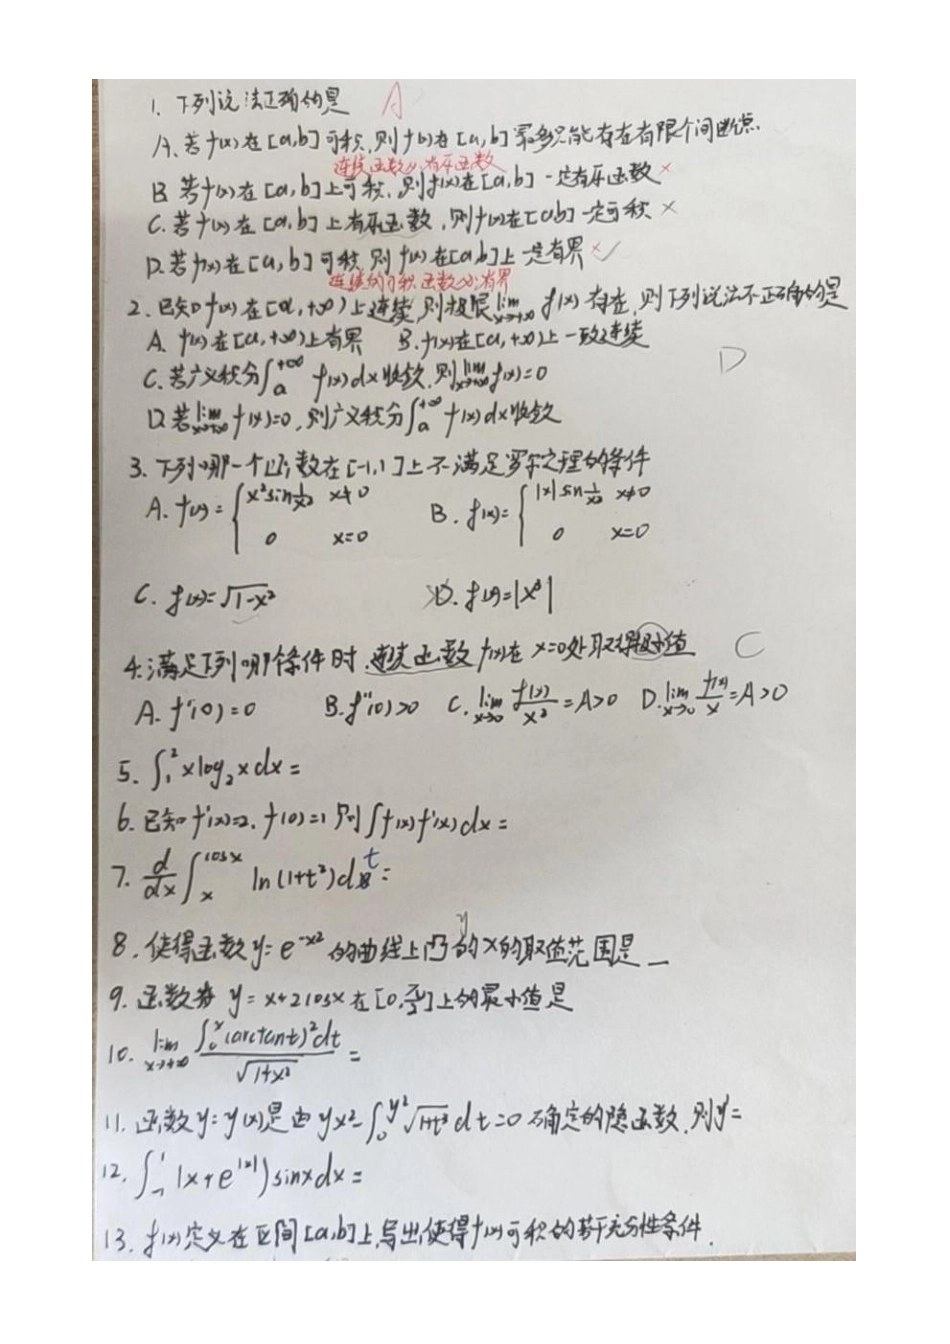 1. 下列说法正确的是 A
A. 若f(x)在[a,b]可积,则f(x)在[a,b]最多只能存在有限个间断点.
连续函数必有原函数
B. 若f(x)在[a,b]上可积,则f(x)在[a,b]一定有原函数 ×
C. 若f(x)在[a,b]上有原函数,则f(x)在[a,b]一定可积 ×
D. 若f(x)在[a,b]可积,则f(x)在[a,b]上一定有界 × ✓
连续的可积函数必有界
2. 已知f(x)在[a,+∞)上连续,则极限lim x→+∞ f(x)存在,则下列说法不正确的是
A. f(x)在[a,+∞)上有界 B. f(x)在[a,+∞)上一致连续
D
C. 若广义积分∫_a^{+∞} f(x)dx收敛,则lim x→+∞ f(x)=0
D. 若lim x→+∞ f(x)=0,则广义积分∫_a^{+∞} f(x)dx收敛
3. 下列哪一个函数在[-1,1]上不满足罗尔定理的条件
A. f(x)={x²sin 1/x² x≠0 B. f(x)={|x|sin 1/x² x≠0
0 x=0 0 x=0
C. f(x)=√(1-x²) D. f(x)=|x³|
4. 满足下列哪个条件时,连续函数f(x)在x=0处取得极小值 C
A. f'(0)=0 B. f''(0)>0 C. lim x→0 f(x)/x²=A>0 D. lim x→0 f(x)/x=A>0
5. ∫_1^2 xlog₂xdx=
6. 已知f'(x)=2, f(0)=1 则∫f(x)f'(x)dx=
7. d/dx ∫_x^{cosx} ln(1+t²)dt=
8. 使得函数y=e^{-x²}的曲线上凸的x的取值范围是_
9. 函数 y=x+2cosx在[0,π/2]上的最小值是
10. lim x→+∞ ∫_0^x (arctant)²dt / √(1+x²) =
11. 函数y=y(x)是由yx²-∫_0^{y²}√(1+t³)dt=0确定的隐函数,则y'=
12. ∫_{-1}^1 (x+e^{|x|})sinxdx=
13. f(x)定义在区间[a,b]上,写出使得f(x)可积的若干充分性条件.